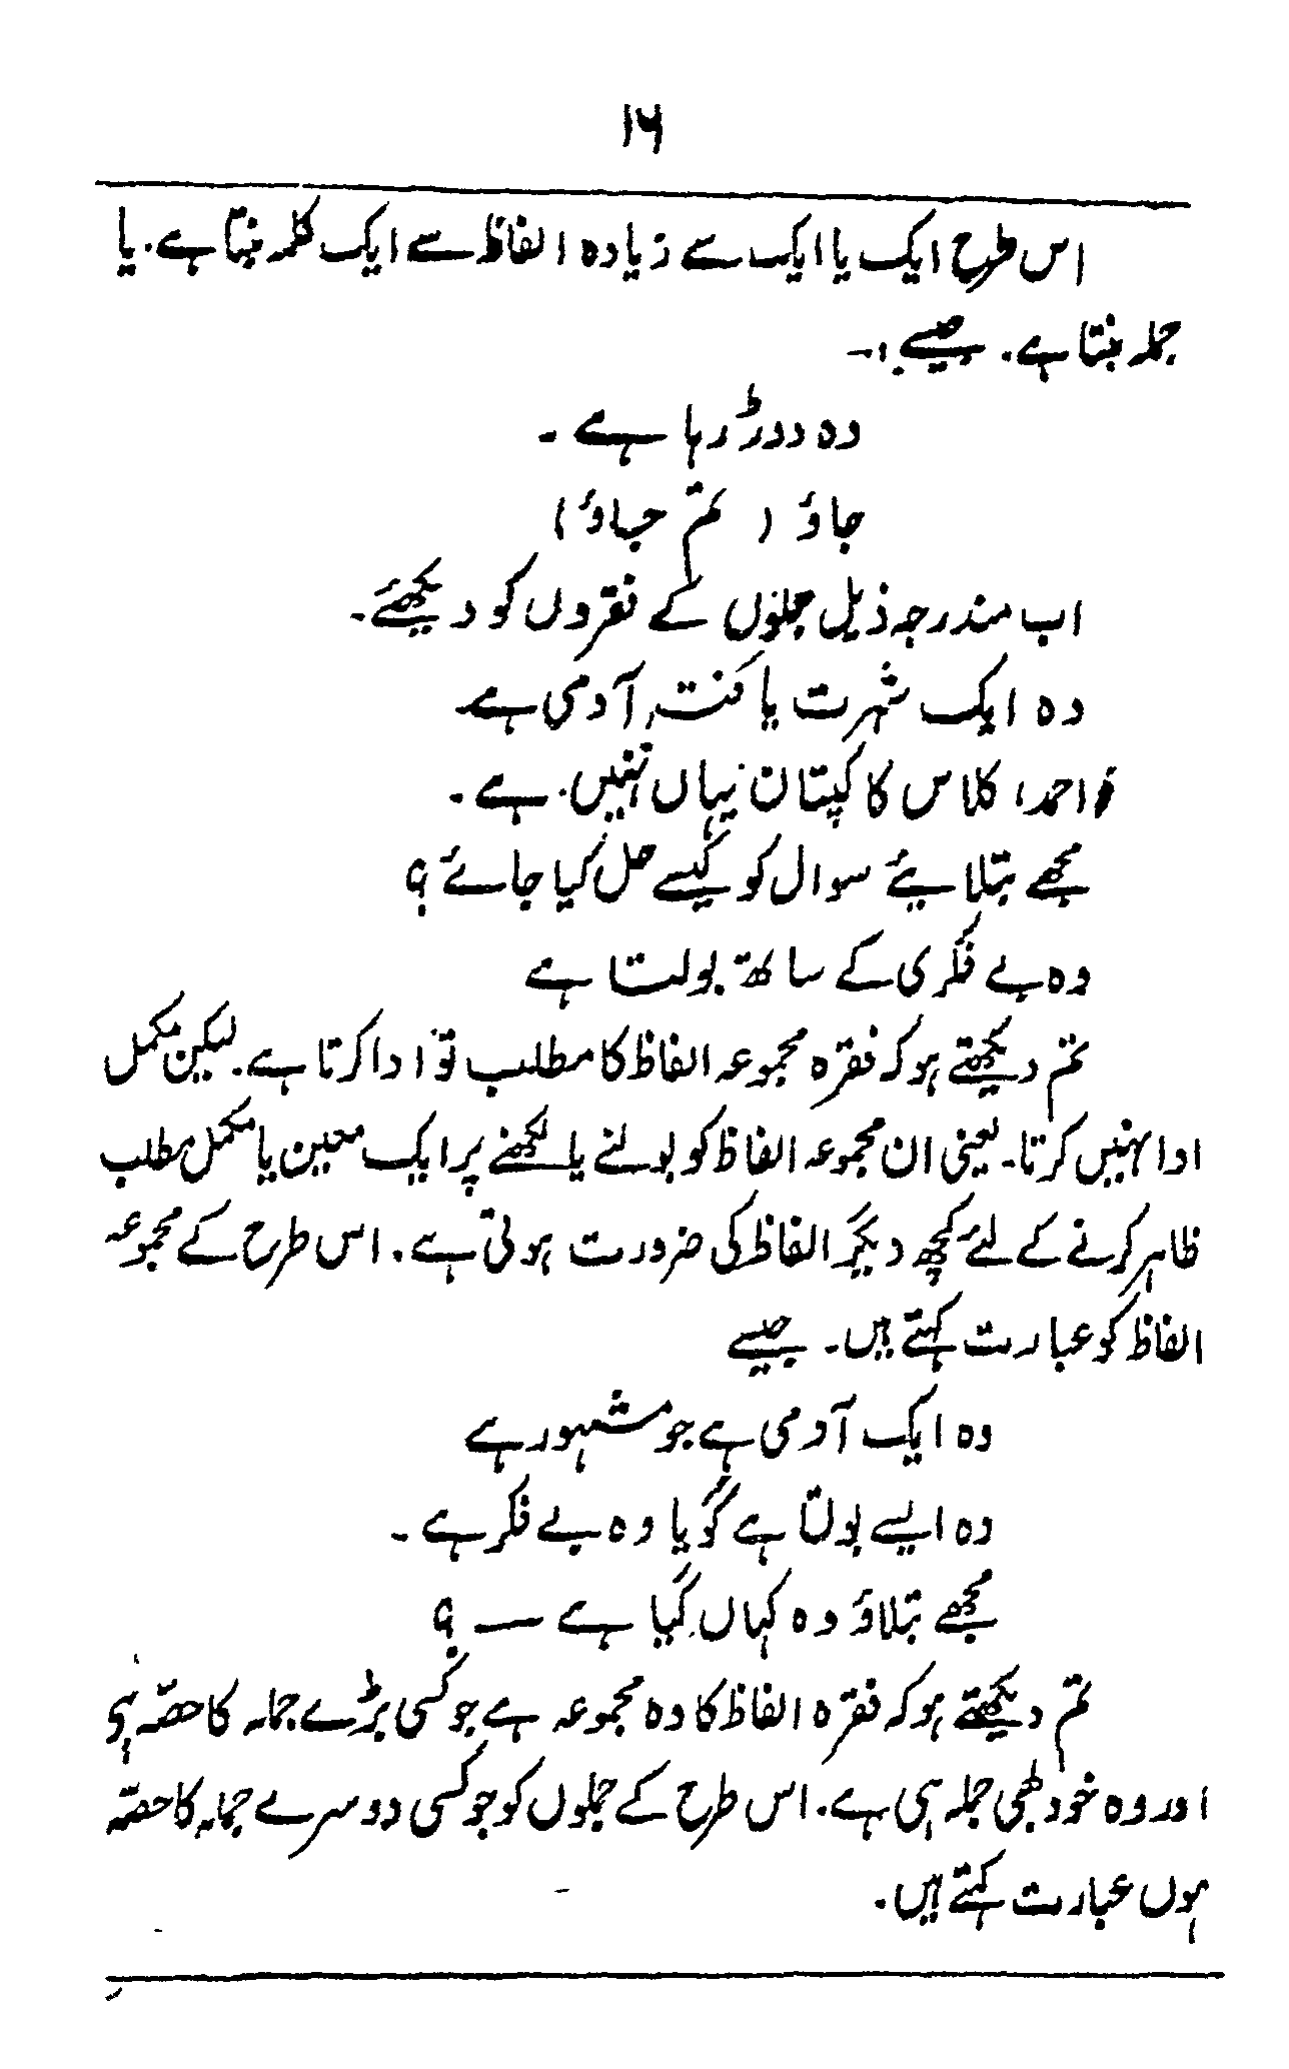 ۱۶
اس طرح ایک یا ایک سے زیادہ الفاظ سے ایک کلمہ بنتا ہے۔ یا
جملہ بنتا ہے۔ جیسے :-
وہ دوڑ رہا ہے ۔
جاؤ ( تم جاؤ )
اب مندرجہ ذیل جملوں کے فقروں کو دیکھئے۔
وہ ایک شہرت یافتہ آدمی ہے
احمد، کلاس کا کپتان یہاں نہیں ہے ۔
مجھے بتلایئے سوال کو کیسے حل کیا جائے ؟
وہ بے فکری کے ساتھ بولتا ہے
تم دیکھتے ہو کہ فقرہ مجموعہ الفاظ کا مطلب تو ادا کرتا ہے۔ لیکن مکمل
ادا نہیں کرتا۔ یعنی ان مجموعہ الفاظ کو بولنے یا لکھنے پر ایک معین یا مکمل مطلب
ظاہر کرنے کے لئے کچھ دیگر الفاظ کی ضرورت ہوتی ہے۔ اس طرح کے مجموعہ
الفاظ کو عبارت کہتے ہیں۔ جیسے
وہ ایک آدمی ہے جو مشہور ہے
وہ ایسے بولتا ہے گویا وہ بے فکر ہے ۔
مجھے بتلاؤ وہ کہاں گیا ہے — ؟
تم دیکھتے ہو کہ فقرہ الفاظ کا وہ مجموعہ ہے جو کسی بڑے جملہ کا حصّہ ہی
اور وہ خود بھی جملہ ہی ہے۔ اس طرح کے جملوں کو جو کسی دوسرے جملہ کا حصّہ
ہوں عبارت کہتے ہیں۔